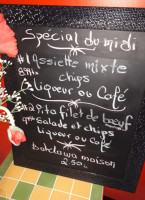 Special du midi
#1 Assiette mixte
chips
& Liqueur ou Café
#2 Pita filet de boeuf
Salade et chips
Liqueur ou café
Baklawa maison
2.50